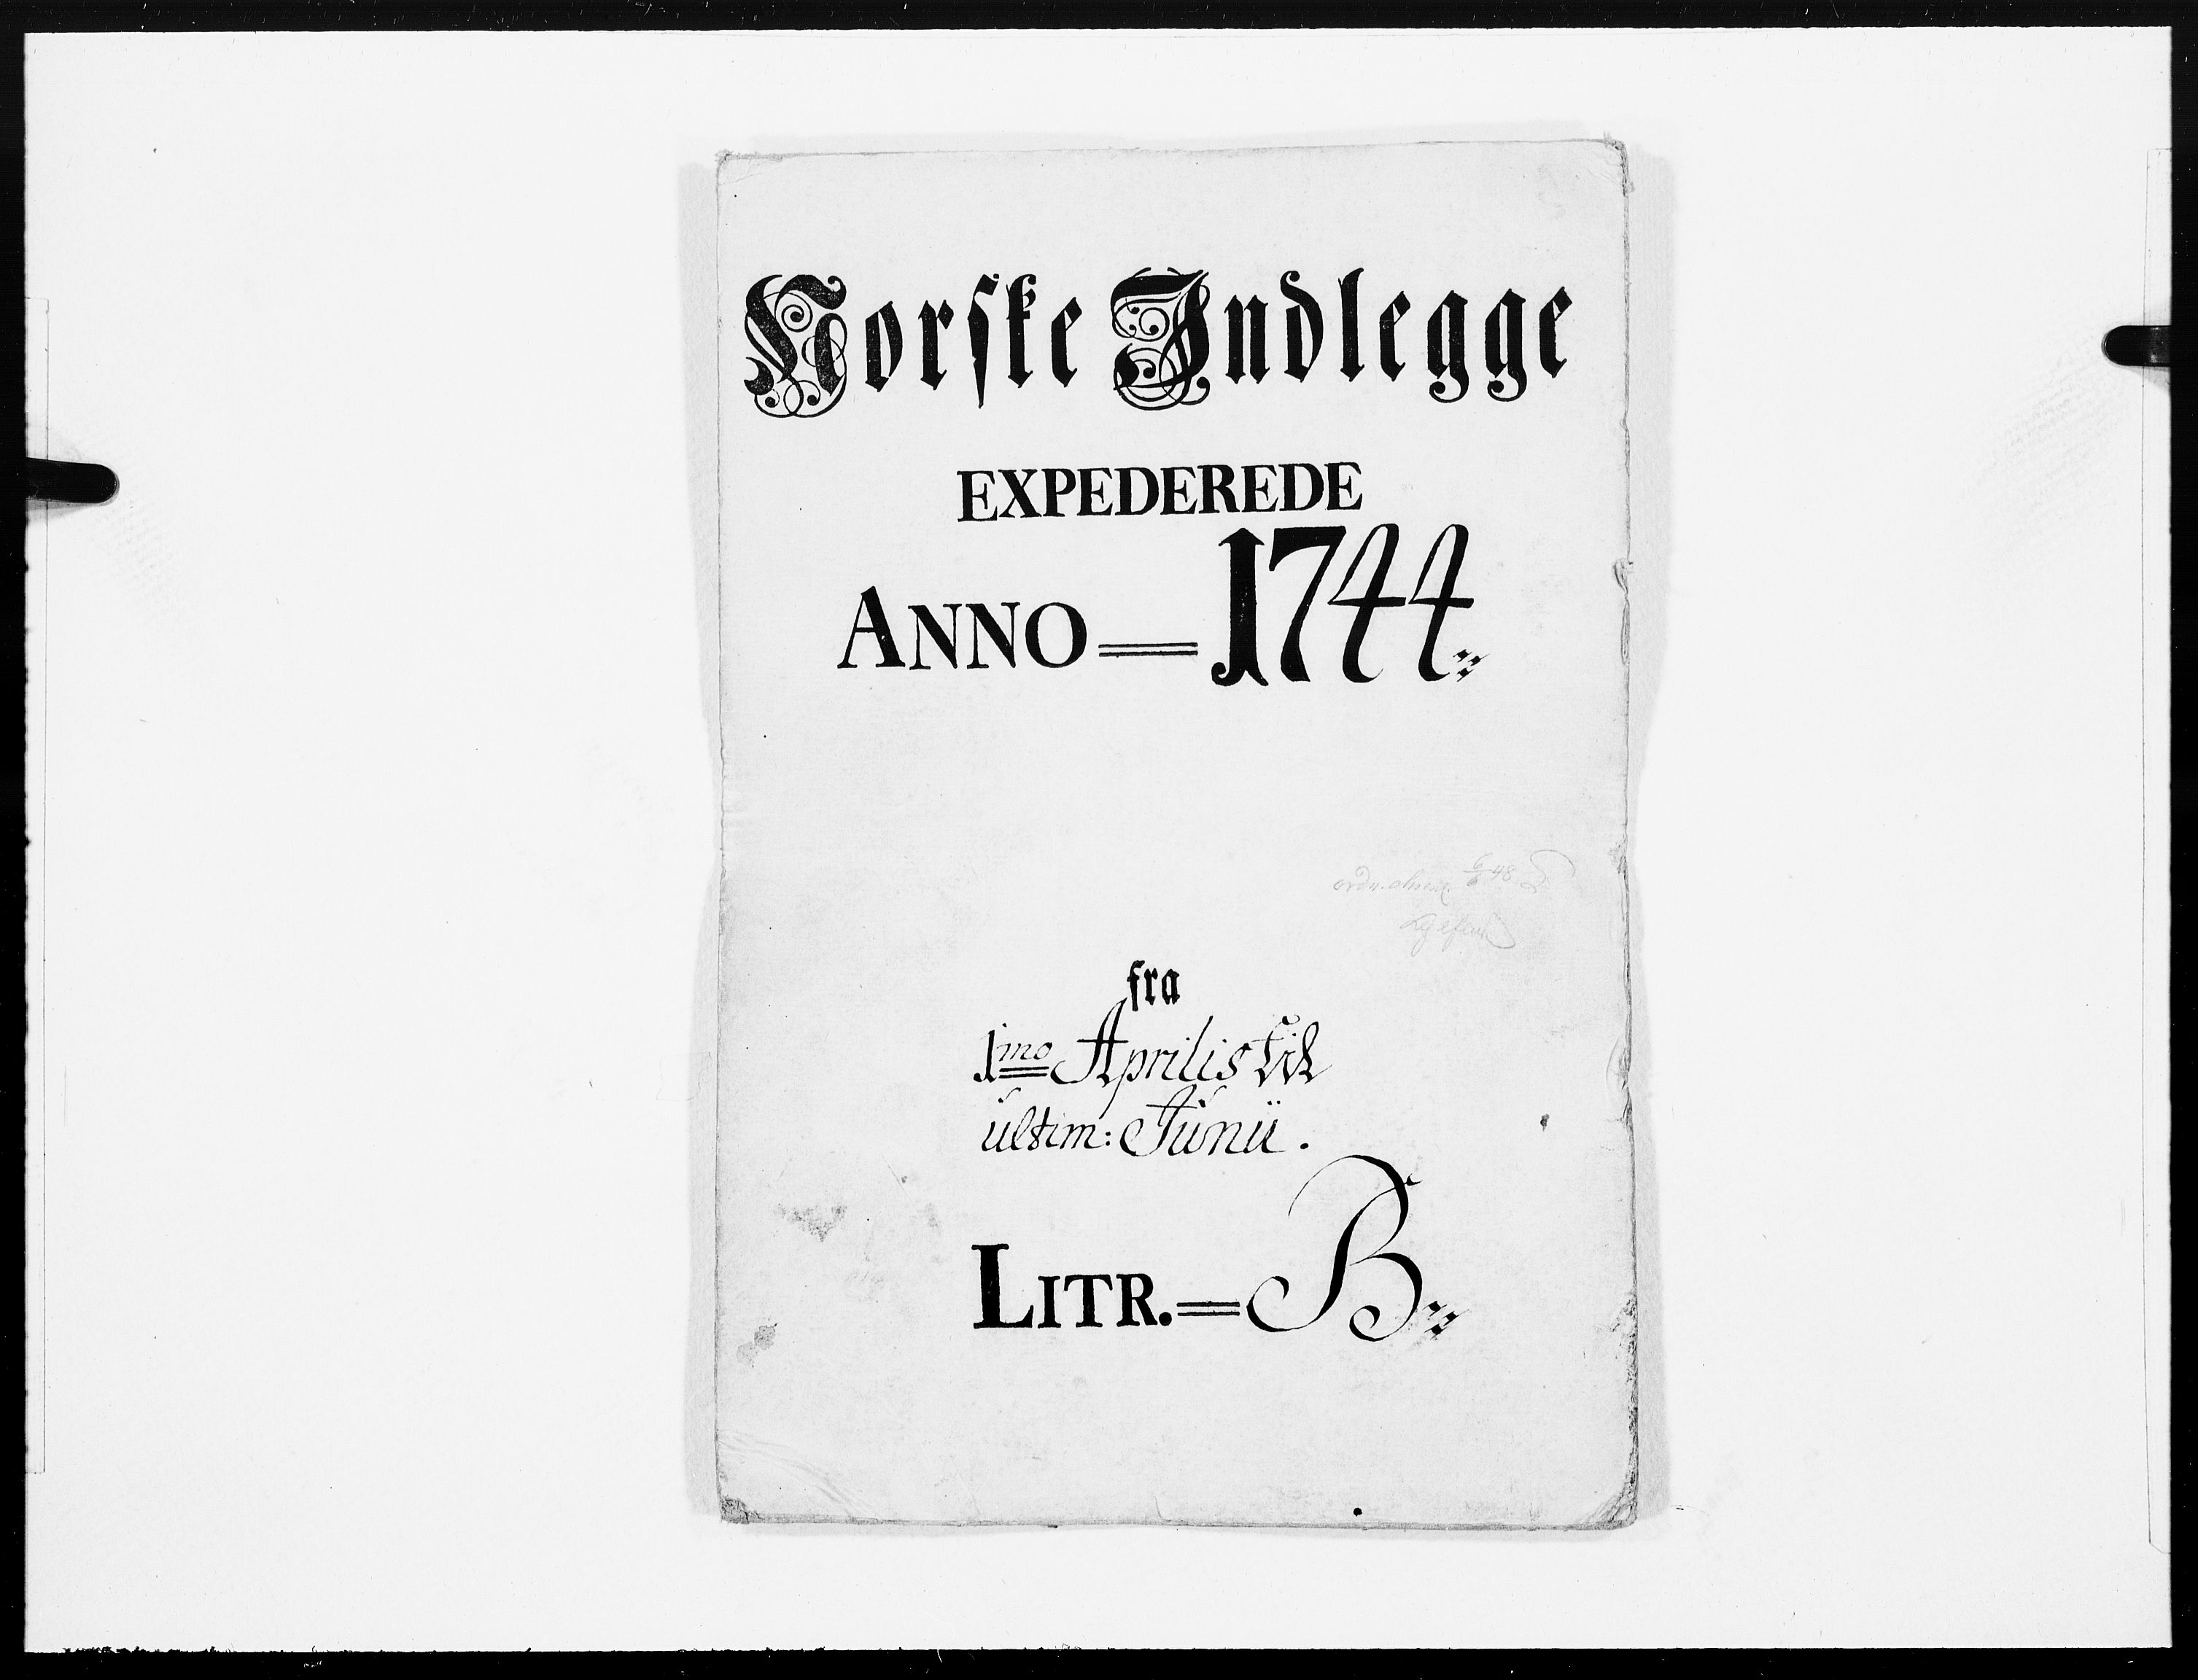 Norske Indlegge
EXPEDEREDE
ANNO = 1744
6/6 48
fra
1mo Aprilis til
ultim: Junii.
LITR. = B